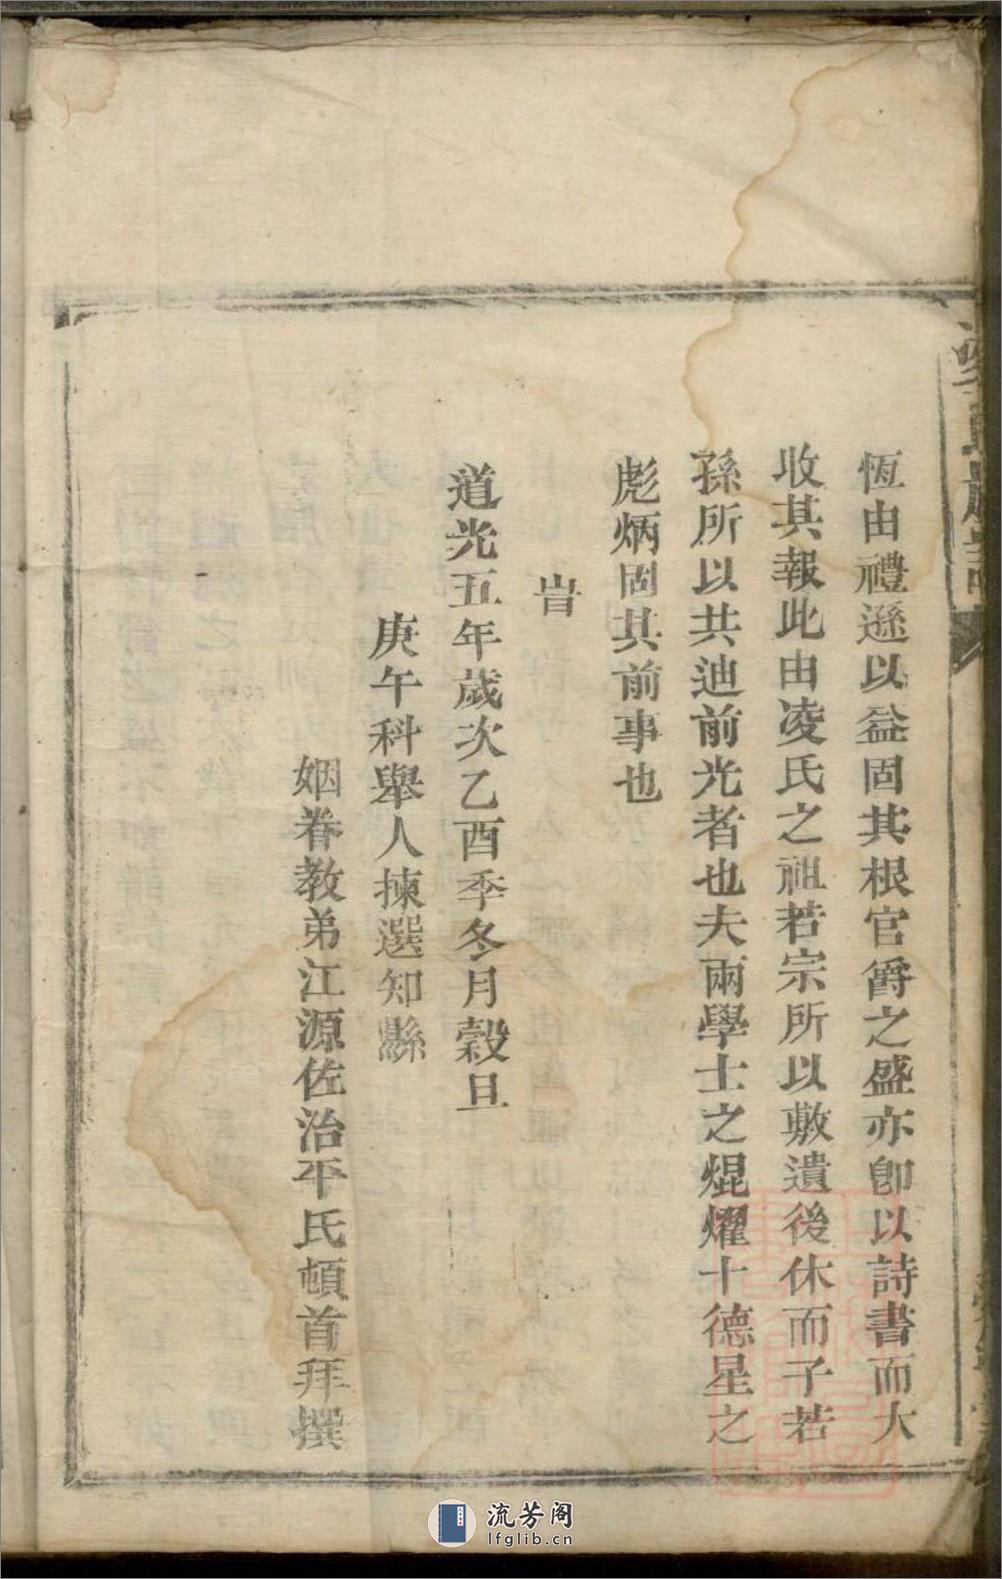 恆由禮遜以益固其根官爵之盛亦卽以詩書而大
收其報此由凌氏之祖若宗所以敷遺後休而子若
孫所以共迪前光者也夫兩學士之焜燿十德星之
彪炳固其前事也
旹
道光五年歲次乙酉季冬月穀旦
庚午科舉人揀選知縣
姻眷教弟江源佐治平氏頓首拜撰
流芳阁
lfglib.cn